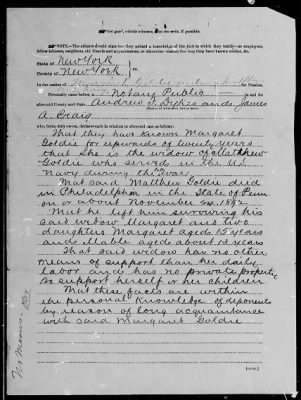 NOTE.—The affiants should state how they gained a knowledge of the facts to which they testify—as employers,
State of New York
County of New York
In the matter of
Personally came before me, a Notary Public in and for
aforesaid County and State Andrew D. Dykes and James
A. Craig
who, being duly sworn, declare each in relation to aforesaid case as follows:
That they have known Margaret
Goldie for upwards of twenty years
that she is the widow of Matthew
Goldie who served in the U.S.
Navy during the war
That said Matthew Goldie died
in Philadelphia in the State of Penn
on or about November 24, 1892
That he left him surviving his
said widow Margaret and two
daughters Margaret aged 15 years
and Isabella aged about 13 years
That said widow has no other
means of support than her daily
labor and has no private property
to support herself or her children
That these facts are within
the personal knowledge of deponents
by reason of long acquaintance
with said Margaret Goldie